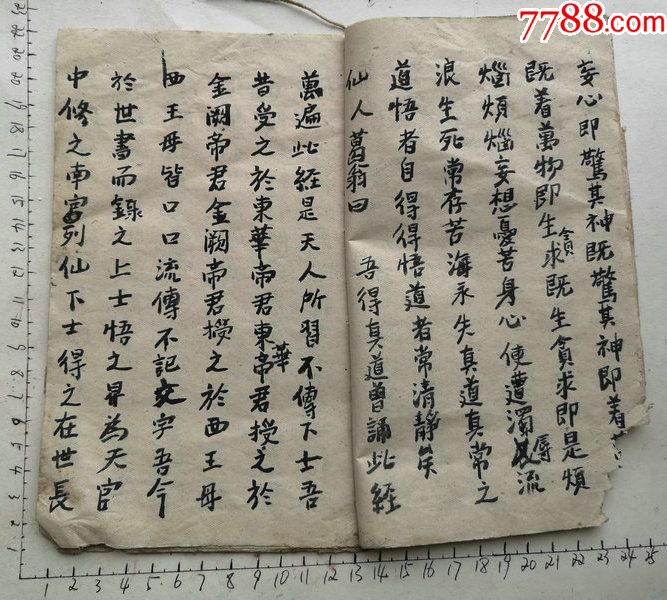 7788.com
妄心即驚其神既驚其神即着
既着萬物即生貪求既生貪求即是煩
惱煩惱妄想憂苦身心使遭濁辱流
浪生死常存苦海永失真道真常之
道悟者自得得悟道者常清靜矣
仙人葛翁曰 吾得真道曾誦此經
萬遍此經是天人所習不傳下士吾
昔受之於東華帝君東華帝君授之於
金闕帝君金闕帝君授之於西王母
西王母皆口口流傳不記文字吾今
於世書而錄之上士悟之昇為天官
中修之南宮列仙下士得之在世長
1 2 3 4 5 6 7 8 9 10 11 12 13 14 15 16 17 18 19 20 21 22 23 24 25